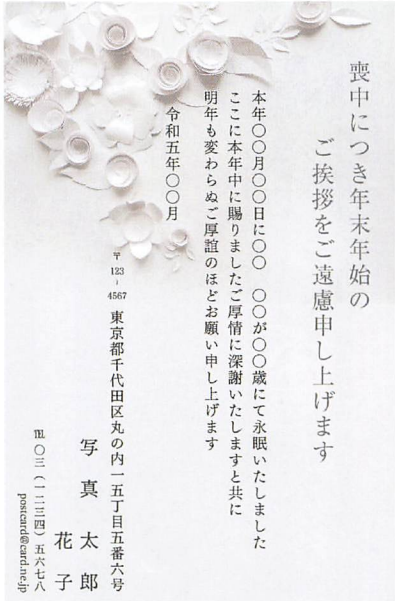 喪中につき年末年始の
ご挨拶をご遠慮申し上げます
本年〇〇月〇〇日に〇〇　〇〇が〇〇歳にて永眠いたしました
ここに本年中に賜りましたご厚情に深謝いたしますと共に
明年も変わらぬご厚誼のほどお願い申し上げます
令和五年〇〇月
〒123-4567
東京都千代田区丸の内一五丁目五番六号
写真太郎
花子
℡〇三(一二三四)五六七八
postcard@card.ne.jp